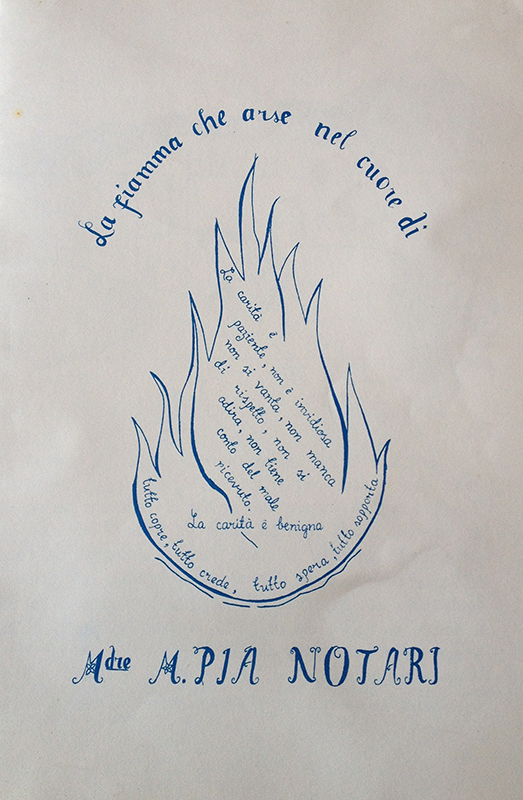 La fiamma che arse nel cuore di
La carità è
paziente, non è invidiosa
non si vanta, non manca
di rispetto, non si
adira, non tiene
conto del male
ricevuto.
La carità è benigna
tutto copre, tutto crede, tutto spera, tutto sopporta
Mdre M. PIA NOTARI